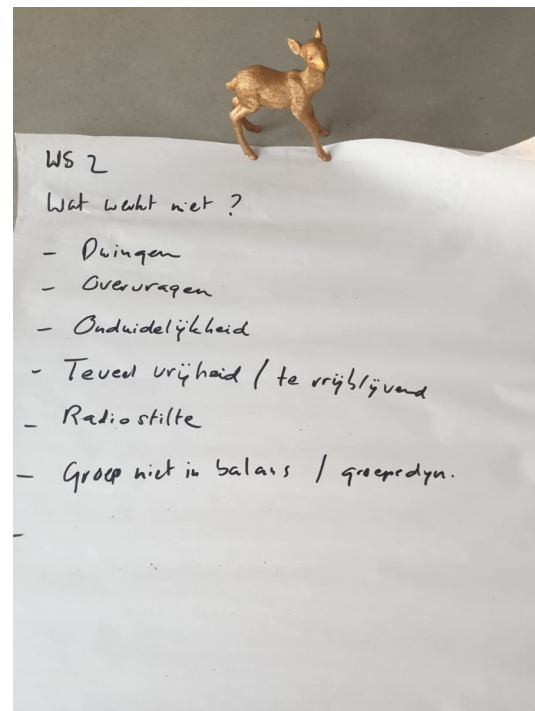 WS 2
Wat werkt niet ?
- Dwingen
- Overvragen
- Onduidelijkheid
- Teveel vrijheid / te vrijblijvend
- Radiostilte
- Groep niet in balans / groepsdyn.
-